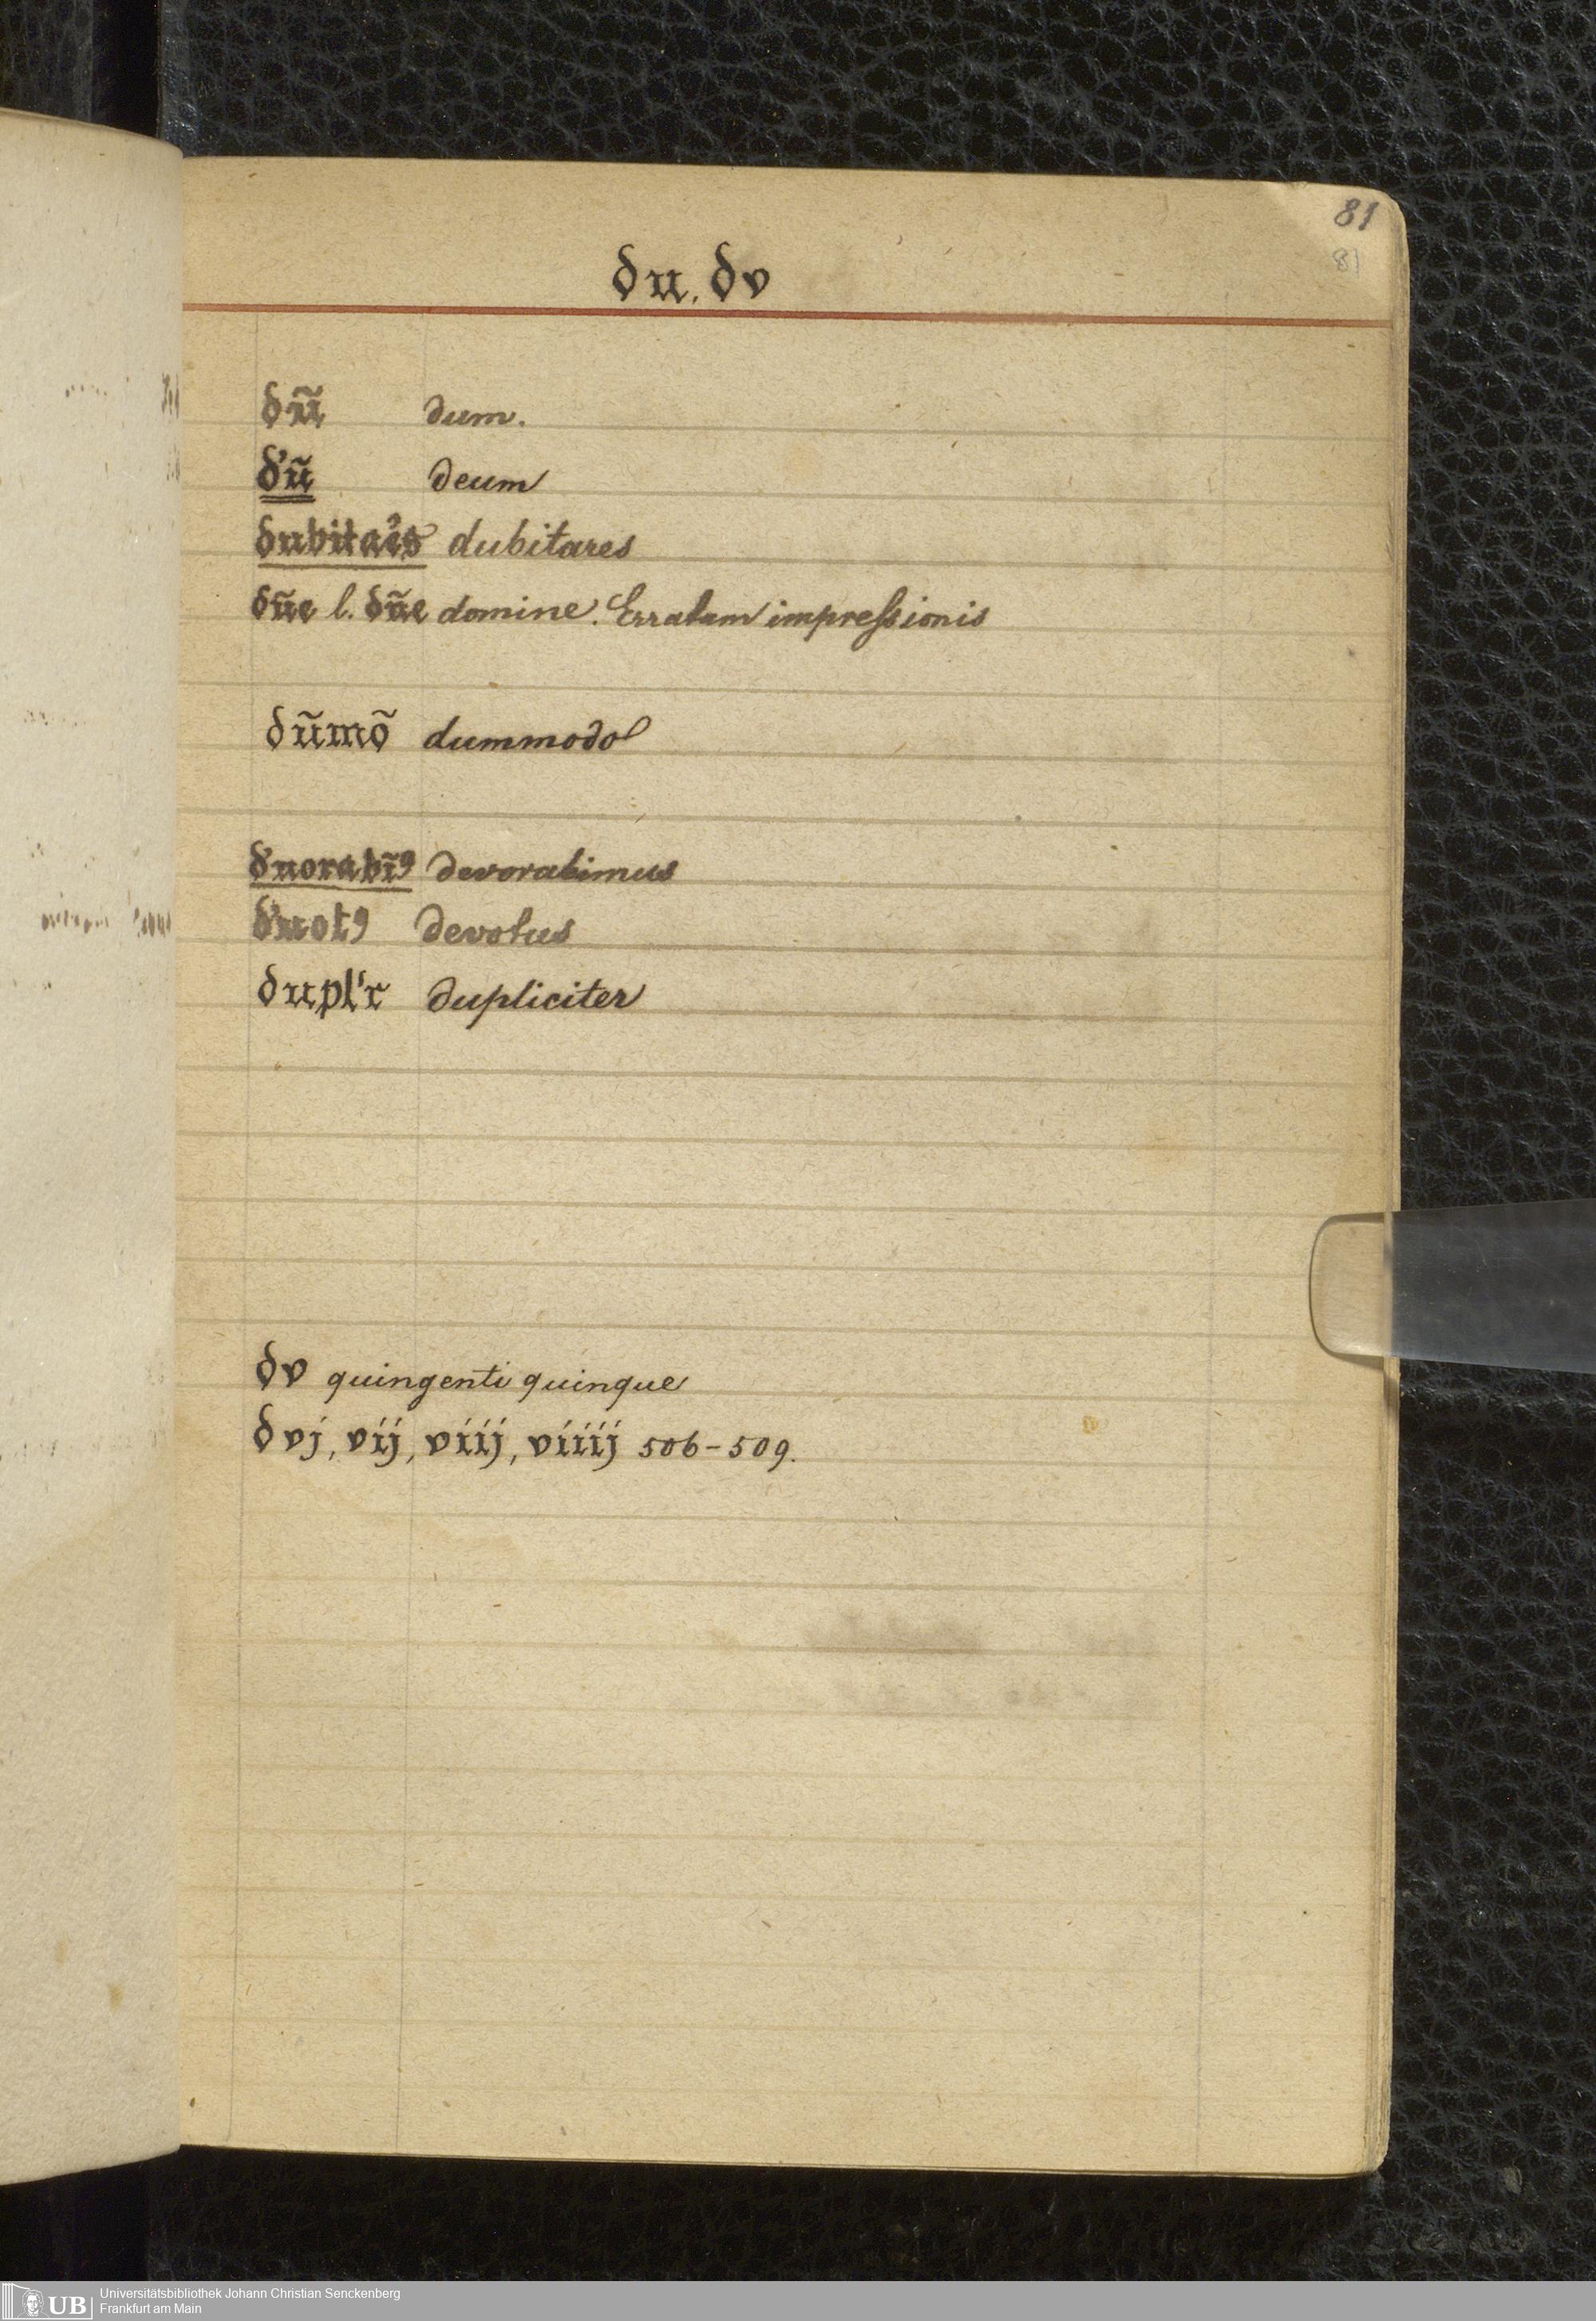 81
81
du. dv
dũ dum.
d'ũ deum
dubitaẻs dubitares
dũe l. dñe domine. Erratum impreſsionis
dũmõ dummodo
d'uorabĩꝰ devorabimus
d'uotꝰ devotus
dupl'r dupliciter
dv quingenti quinque
dvj, vij, viij, viiij 506-509.
UB Universitätsbibliothek Johann Christian Senckenberg
Frankfurt am Main